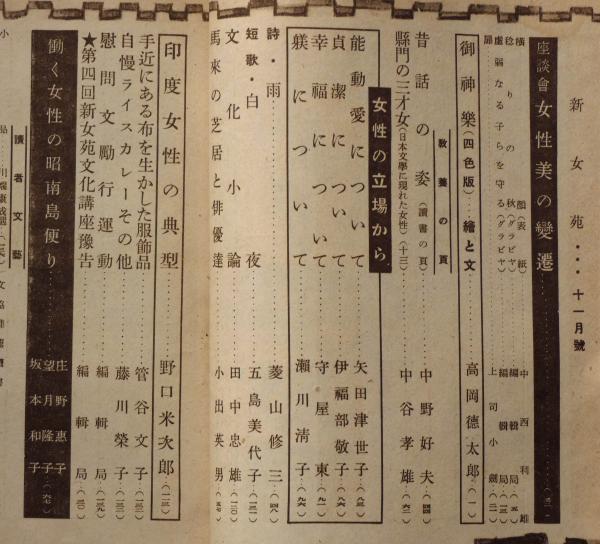 新女苑・・・十一月號
座談會 女性美の變遷
横顔(表紙)……中西利雄
稔りの秋(グラビヤ)……編輯局
虚弱なる子らを守る(グラビヤ)……編輯局
扉……上司小劍
御神樂(四色版) 繪と文……高岡德太郎
教養の頁
昔話の姿(讀書の頁)……中野好夫
縣門の三才女(日本文學に現れた女性)(十三)……中谷孝雄
女性の立場から
能動愛について……矢田津世子
貞潔について……伊福部敬子
幸福について……守屋東
躾について……瀬川清子
詩・雨……菱山修三
短歌・白夜……五島美代子
文化小論……田中忠雄
馬來の芝居と俳優達……小出英男
印度女性の典型……野口米次郎
手近にある布を生かした服飾品……菅谷文子
自慢ライスカレーその他……藤川榮子
慰問文勵行運動……編輯局
★第四回新女苑文化講座豫告……編輯局
働く女性の昭南島便り……庄野惠子 望月隆子 坂本和子
讀者文藝
小品……川端康成選